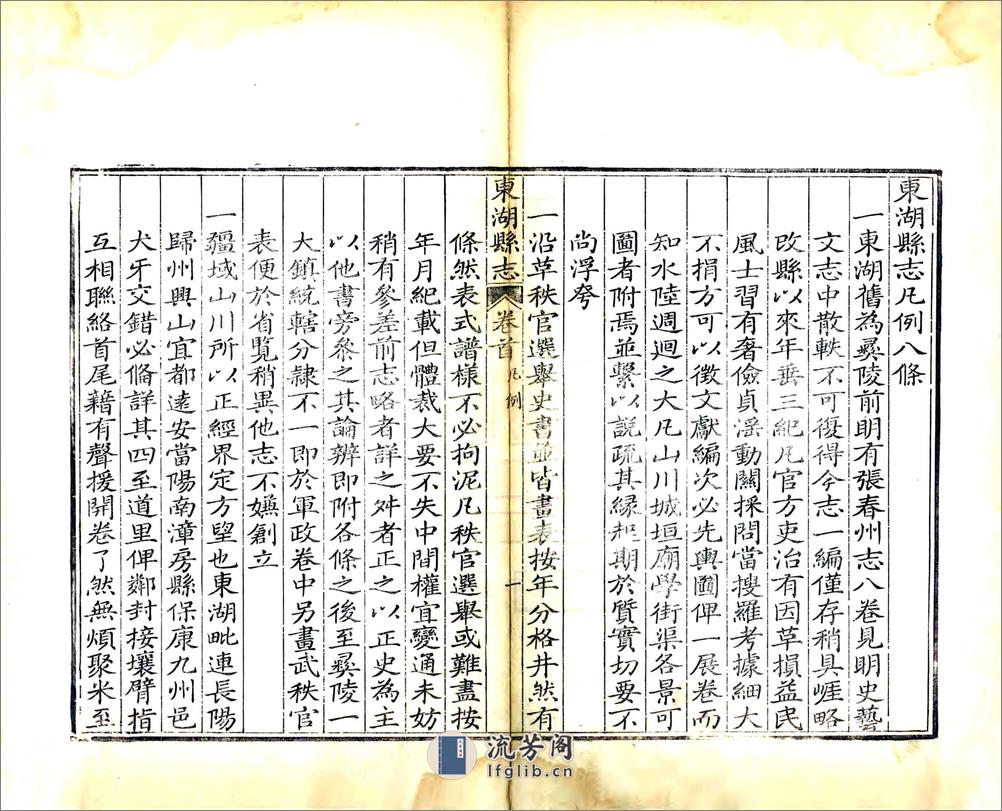 東湖縣志凡例八條
一東湖舊為彞陵前明有張春州志八卷見明史藝
文志中散軼不可復得今志一編僅存稍具崕略
改縣以來年垂三紀凡官方吏治有因革損益民
風士習有奢儉貞滛動關採問當搜羅考據細大
不捐方可以徴文獻編次必先輿圖俾一展卷而
知水陸週迴之大凡山川城垣廟學街渠各景可
圖者附焉並繫以說疏其縁起期於質實切要不
尚浮夸
一沿革秩官選舉史書並皆畫表按年分格井然有
東湖縣志 卷首 凡例 一
條然表式譜樣不必拘泥凡秩官選舉或難盡按
年月紀載但體裁大要不失中間權宜變通未妨
稍有參差前志略者詳之舛者正之以正史為主
以他書旁參之其論辨即附各條之後至彞陵一
大鎮統轄分隷不一即於軍政卷中另畫武秩官
表便於省覽稍異他志不嫌創立
一疆域山川所以正經界定方望也東湖毗連長陽
歸州興山宜都遠安當陽南漳房縣保康九州邑
犬牙交錯必脩詳其四至道里俾鄰封接壤臂指
互相聯絡首尾藉有聲援開卷了然無煩聚米至
流芳阁
lfglib.cn